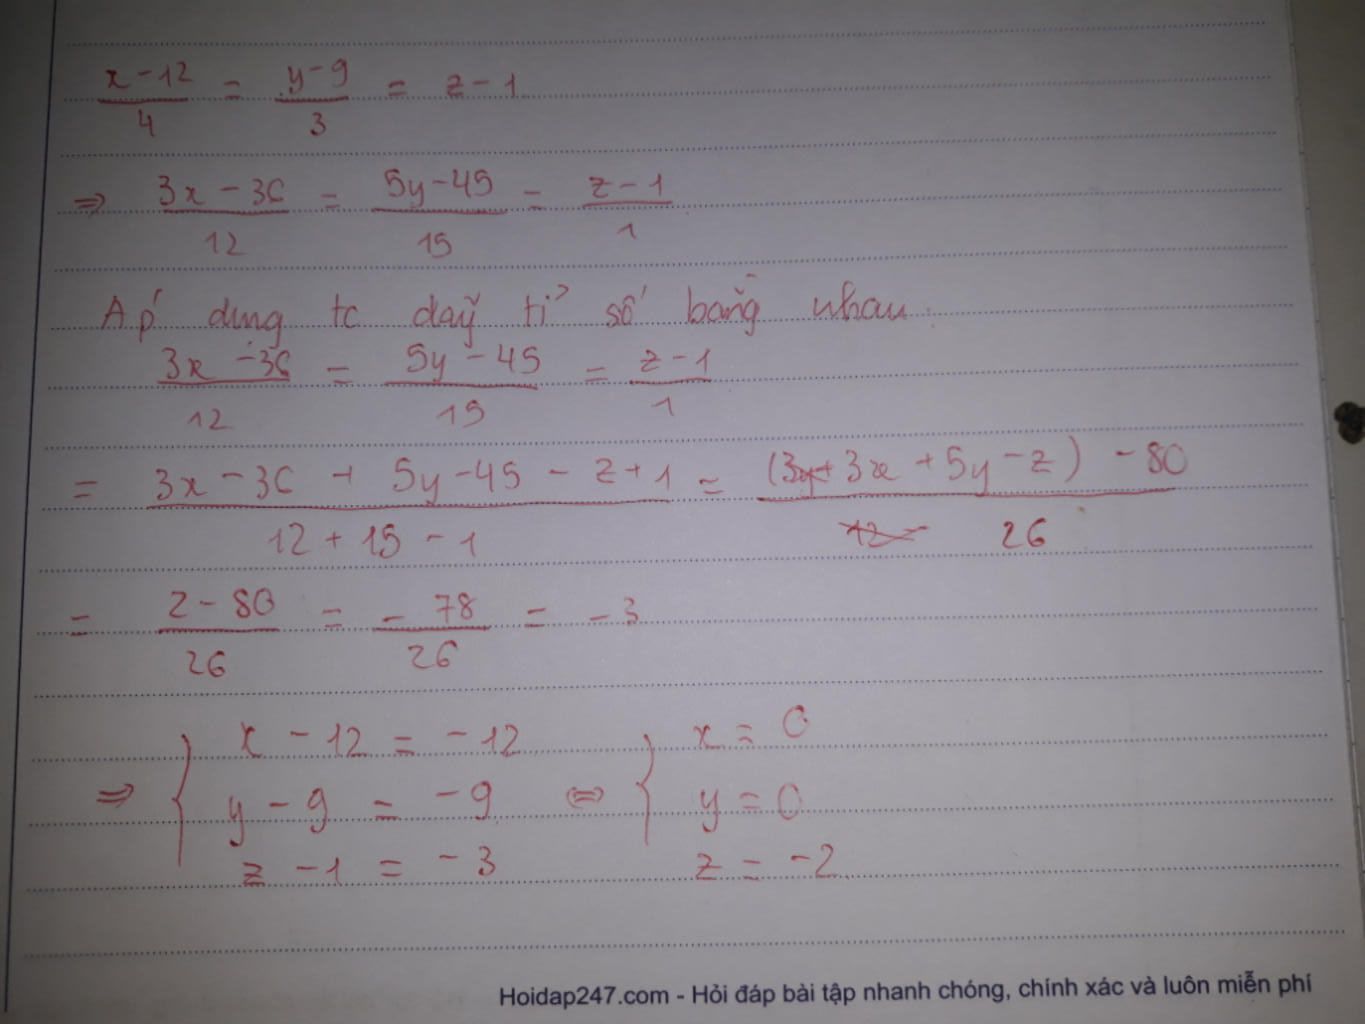 x-12/4 = y-9/3 = z-1
⇒ 3x-36/12 = 5y-45/15 = z-1/1
Áp dụng tc dãy tỉ số bằng nhau:
3x-36/12 = 5y-45/15 = z-1/1
= 3x-36+5y-45-z+1/12+15-1 = (3x+5y-z)-80/26
= 2-80/26 = -78/26 = -3
⇒ { x-12=-12 ⇔ { x=0
y-9=-9 y=0
z-1=-3 z=-2
Hoidap247.com - Hỏi đáp bài tập nhanh chóng, chính xác và luôn miễn phí